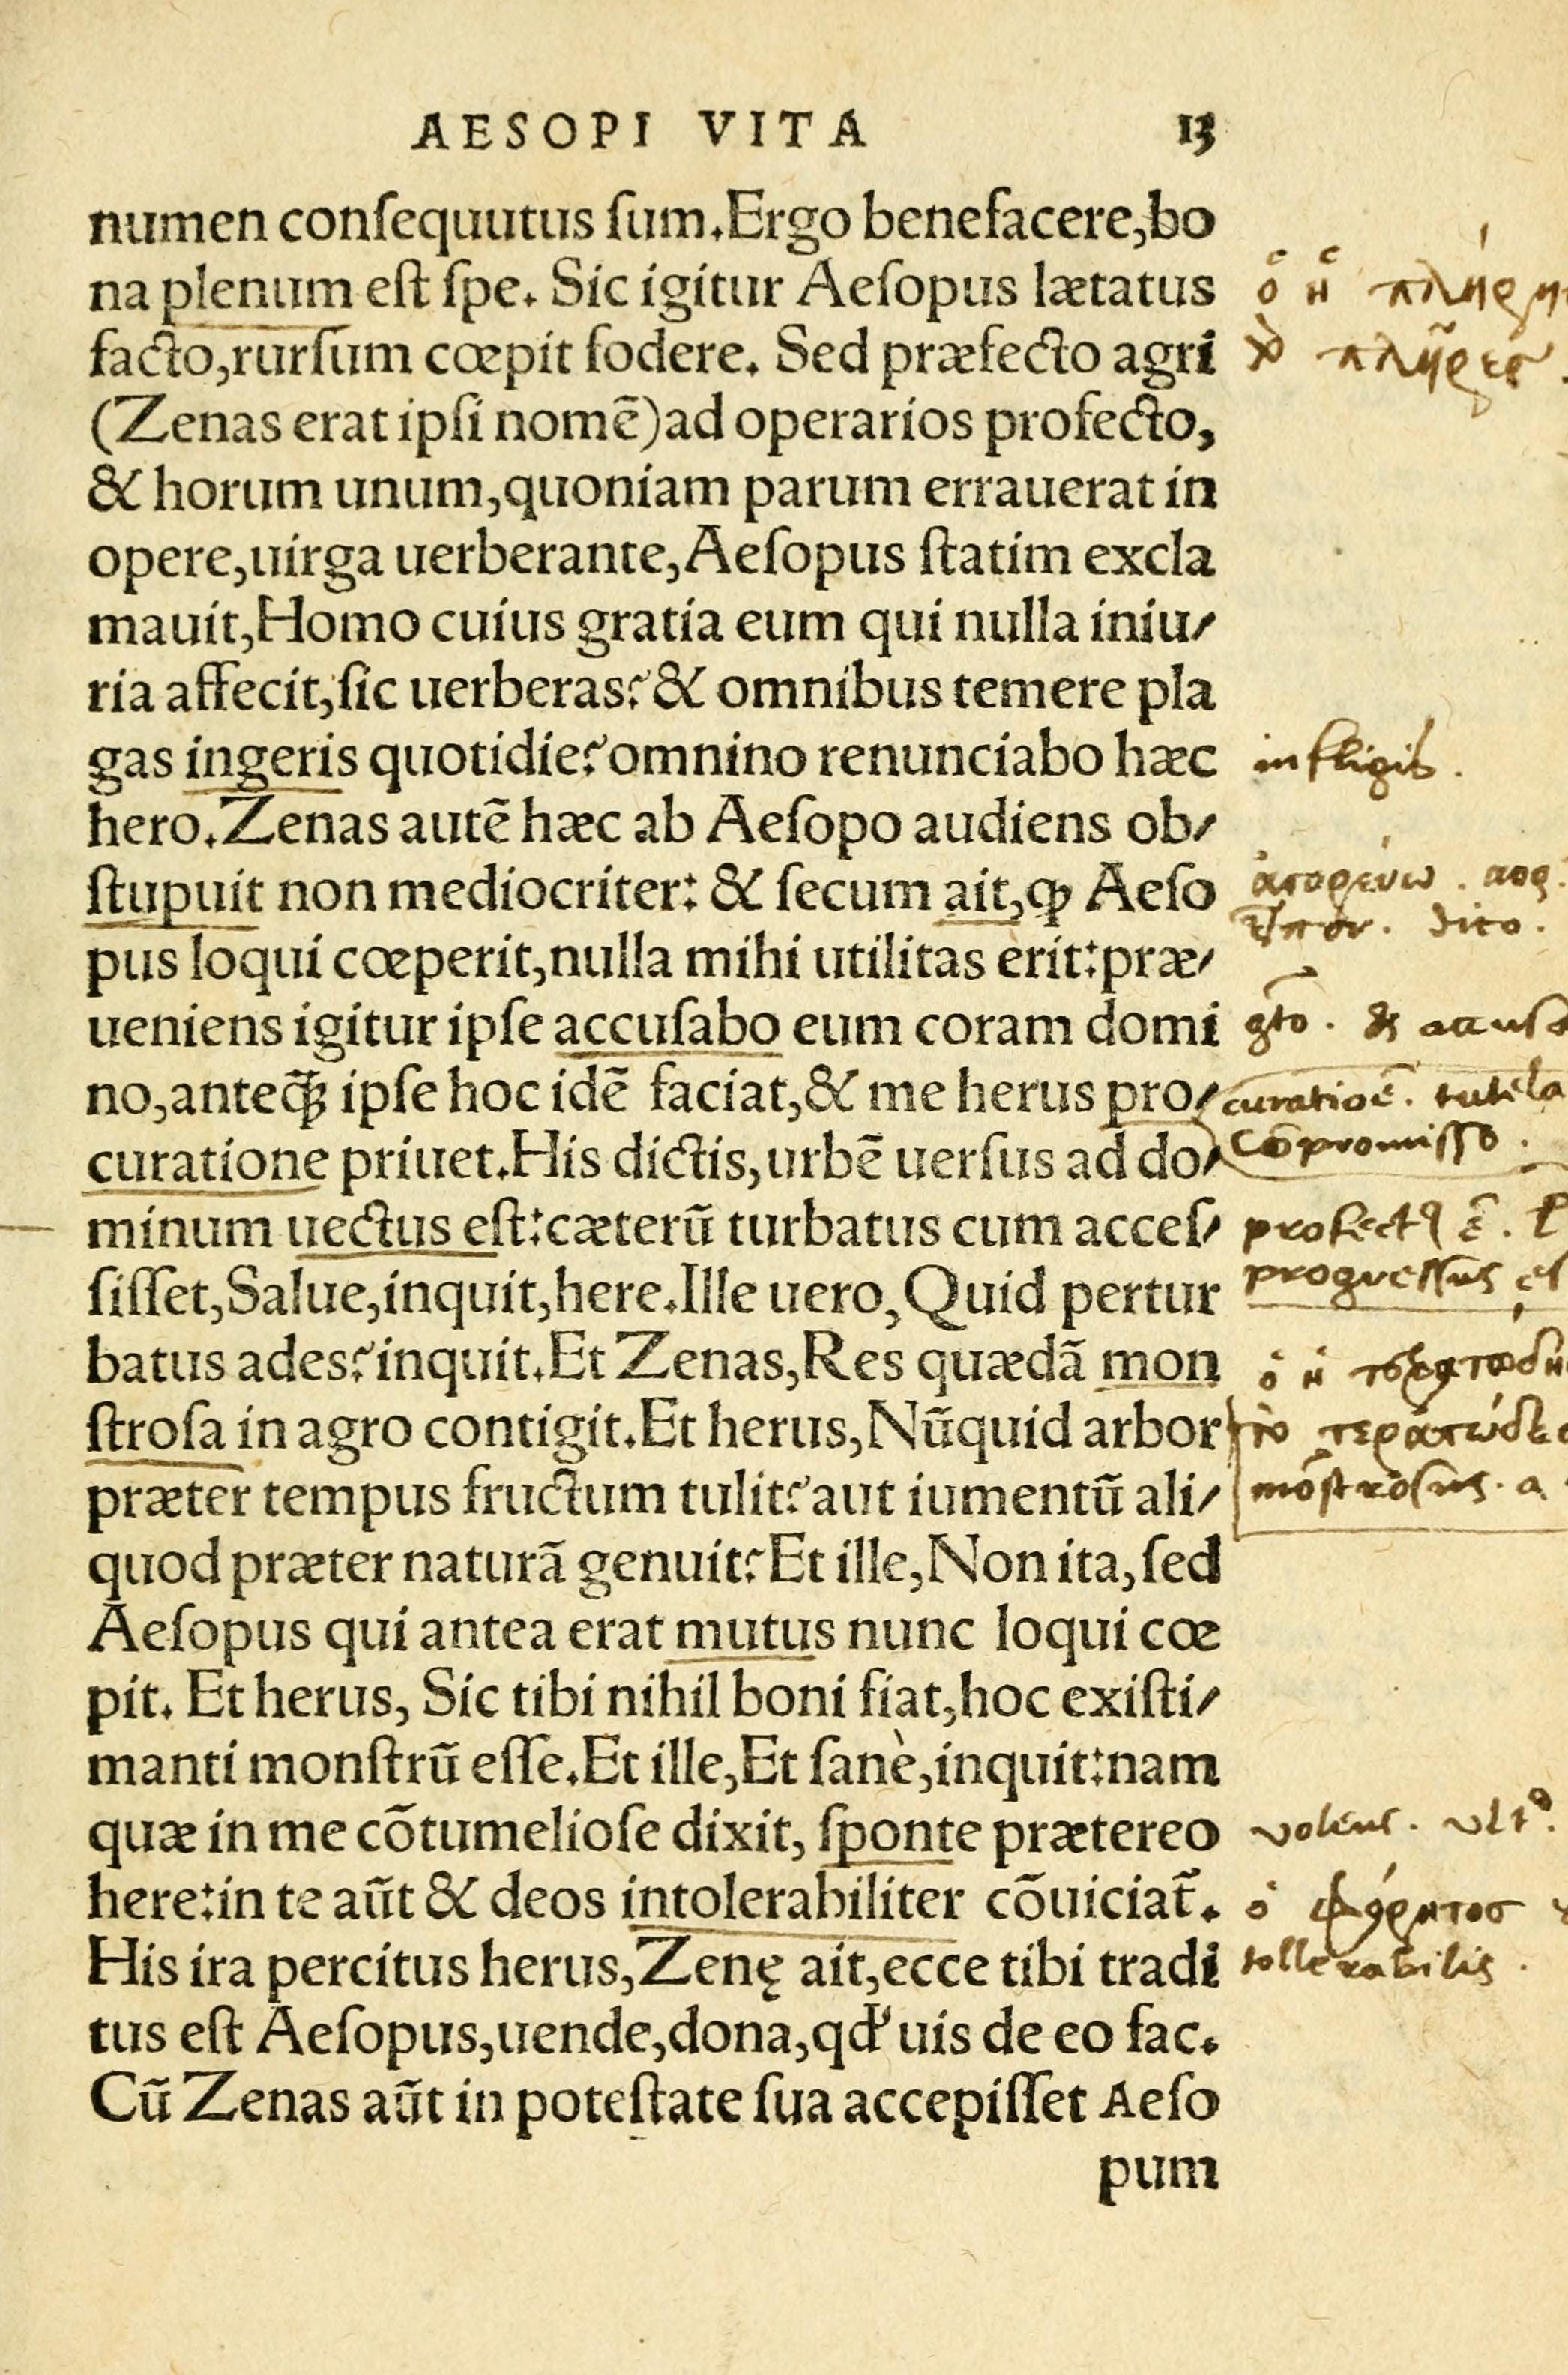 AESOPI VITA 13
numen conſequutus ſum.Ergo benefacere,bo
na plenum eſt ſpe. Sic igitur Aeſopus lætatus
facto,rurſum cœpit fodere. Sed præfecto agri
(Zenas erat ipſi nomē)ad operarios profecto,
& horum unum,quoniam parum errauerat in
opere,uirga uerberante,Aeſopus ſtatim excla
mauit,Homo cuius gratia eum qui nulla iniu-
ria affecit,ſic uerberas?& omnibus temere pla
gas ingeris quotidie?omnino renunciabo hæc
infligis.
hero.Zenas autē hæc ab Aeſopo audiens ob-
ſtupuit non mediocriter: & ſecum ait,ꝙ Aeſo
dico.
pus loqui cœperit,nulla mihi utilitas erit:præ-
ueniens igitur ipſe accuſabo eum coram domi
no,anteꝗ̃ ipſe hoc idē faciat,& me herus pro-
curatiōe. tutela
curatione priuet.His dictis,urbē uerſus ad do-
cōpromisso.
minum uectus eſt:cæterū turbatus cum acceſ-
ſiſſet,Salue,inquit,here.Ille uero,Quid pertur
progressus
batus ades?inquit.Et Zenas,Res quædā mon
ſtroſa in agro contigit.Et herus,Nūquid arbor
τερατώδες
præter tempus fructum tulit?aut iumentū ali-
mōstrosus. a
quod præter naturā genuit?Et ille,Non ita,ſed
Aeſopus qui antea erat mutus nunc loqui cœ
pit. Et herus, Sic tibi nihil boni fiat,hoc exiſti-
manti monſtrū eſſe.Et ille,Et ſanè,inquit:nam
quæ in me cōtumelioſe dixit, ſponte prætereo
volens.
here:in te aūt & deos intolerabiliter cōuiciat̃.
His ira percitus herus,Zenę ait,ecce tibi tradi
tollerabilis.
tus eſt Aeſopus,uende,dona,qd' uis de eo fac.
Cū Zenas aūt in poteſtate ſua accepiſſet Aeſo
pum